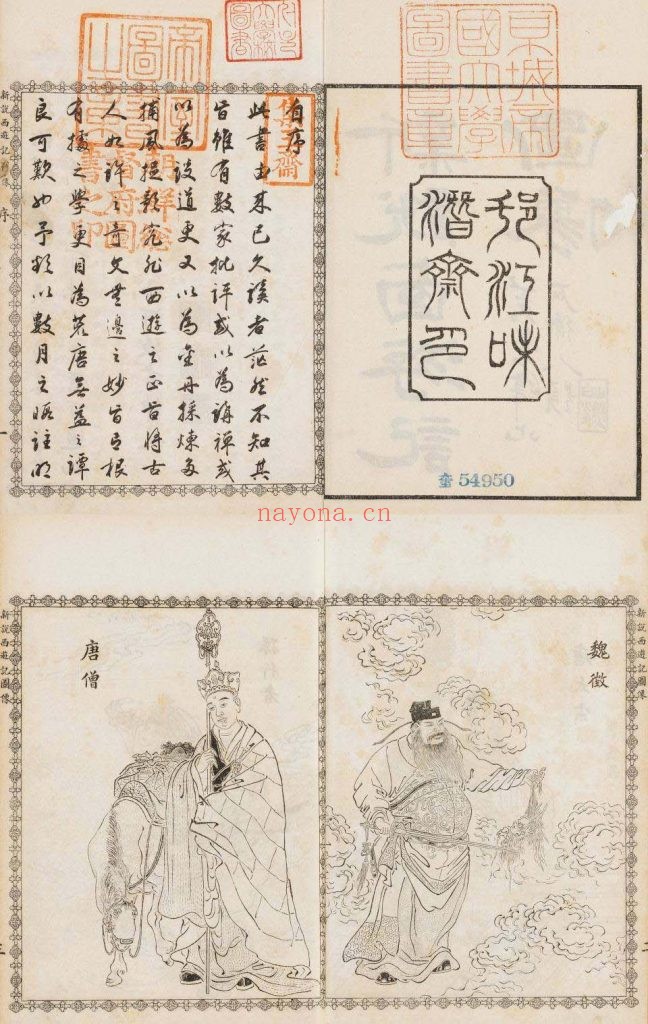 京城帝
國大學
圖書章
邗江味
潛齋印
奎 54950
自序
此書由來已久讀者茫然不知其
旨雖有數家批評或以為講禪或
以為談道更又以為金丹採煉多
捕風捉影究非西遊之正旨將古
人如許之奇文無邊之妙旨有根
有據之學更目為荒唐無益之譚
良可歎也予 以數月之暇註明
新說西遊記圖像 序 一
nayona.cn
魏徵
新說西遊記圖像 二
唐僧
新說西遊記圖像 三